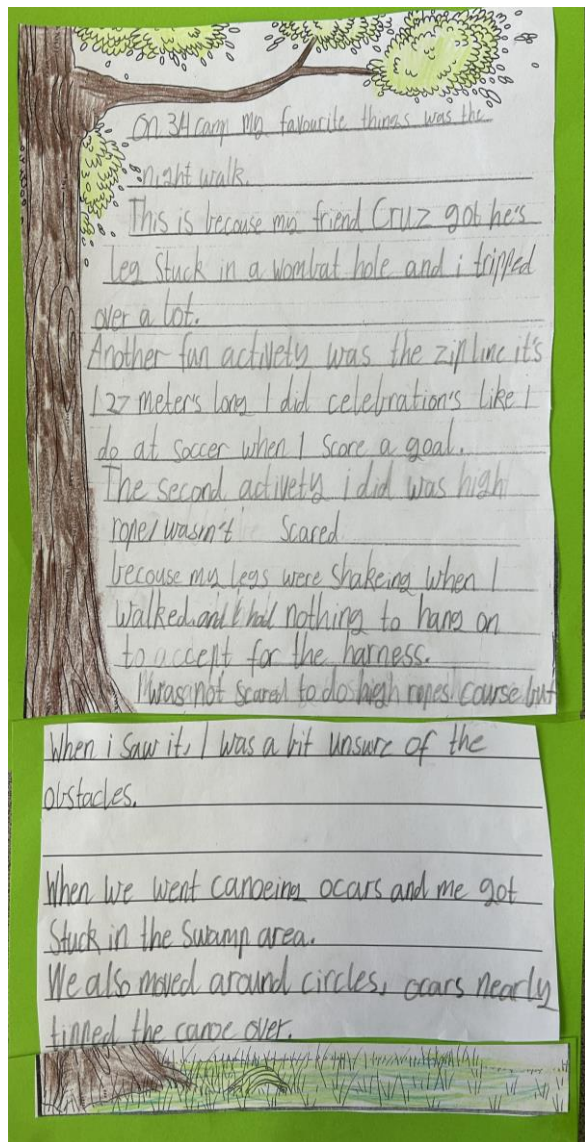 On 3H camp my favourite things was the
night walk.
This is becouse my friend Cruz got he's
leg stuck in a wombat hole and i tripped
over a lot.
Another fun activety was the zipline it's
127 meter's long I did celebration's like I
do at soccer when I score a goal.
The second activety i did was high
rope I wasin't scared
becouse my legs were shakeing when I
walked and I had nothing to hang on
to accept for the harness.
I was not scared to do high ropes course but
When i saw it, I was a bit unsure of the
obstacles.
When we went canoeing ocars and me got
stuck in the swamp area.
We also moved around circles, ocars nearly
tipped the canoe over.